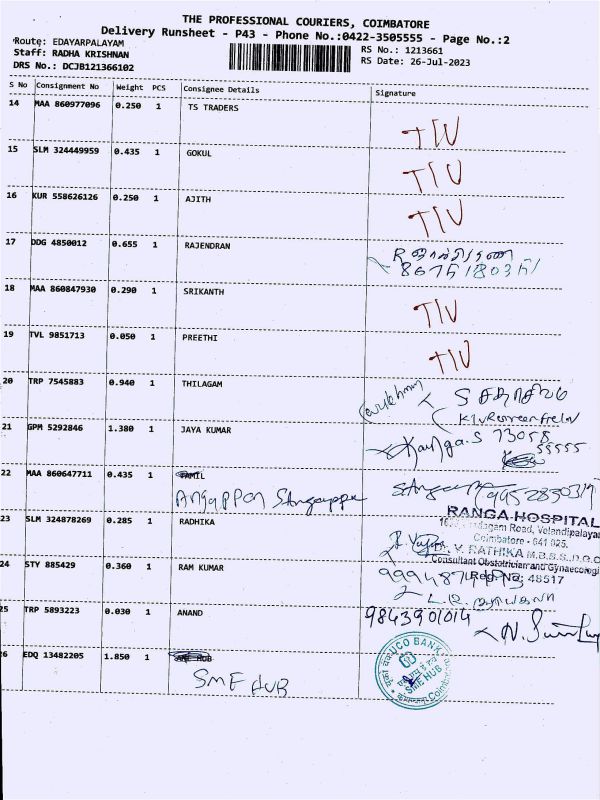 THE PROFESSIONAL COURIERS, COIMBATORE
Delivery Runsheet - P43 - Phone No.:0422-3505555 - Page No.:2
Route: EDAYARPALAYAM
Staff: RADHA KRISHNAN
DRS No.: DCJB121366102
RS No.: 1213661
RS Date: 26-Jul-2023
S No Consignment No Weight PCS Consignee Details Signature
14 MAA 860977096 0.250 1 TS TRADERS
TIV
15 SLM 324449959 0.435 1 GOKUL
TIV
16 KUR 558626126 0.250 1 AJITH
TIV
17 DDG 4850012 0.655 1 RAJENDRAN
18 MAA 860847930 0.290 1 SRIKANTH
TIV
19 TVL 9851713 0.050 1 PREETHI
TIV
20 TRP 7545883 0.940 1 THILAGAM
21 GPM 5292846 1.380 1 JAYA KUMAR
Kanga.S 73058
55555
22 MAA 860647711 0.435 1 TAMIL
Angappan Sangappa
RANGA HOSPITAL
Road, Velandipalayam
Coimbatore - 641 025.
23 SLM 324878269 0.285 1 RADHIKA
Dr. V. RATHIKA M.B.B.S.,D.G.O
Consultant Obstetrician and Gynaecologi
Reg No: 48517
24 STY 885429 0.360 1 RAM KUMAR
25 TRP 5893223 0.030 1 ANAND
9843901014
26 EDQ 13482205 1.850 1 HUB
SME HUB
UCO BANK
SME HUB
Coimbatore